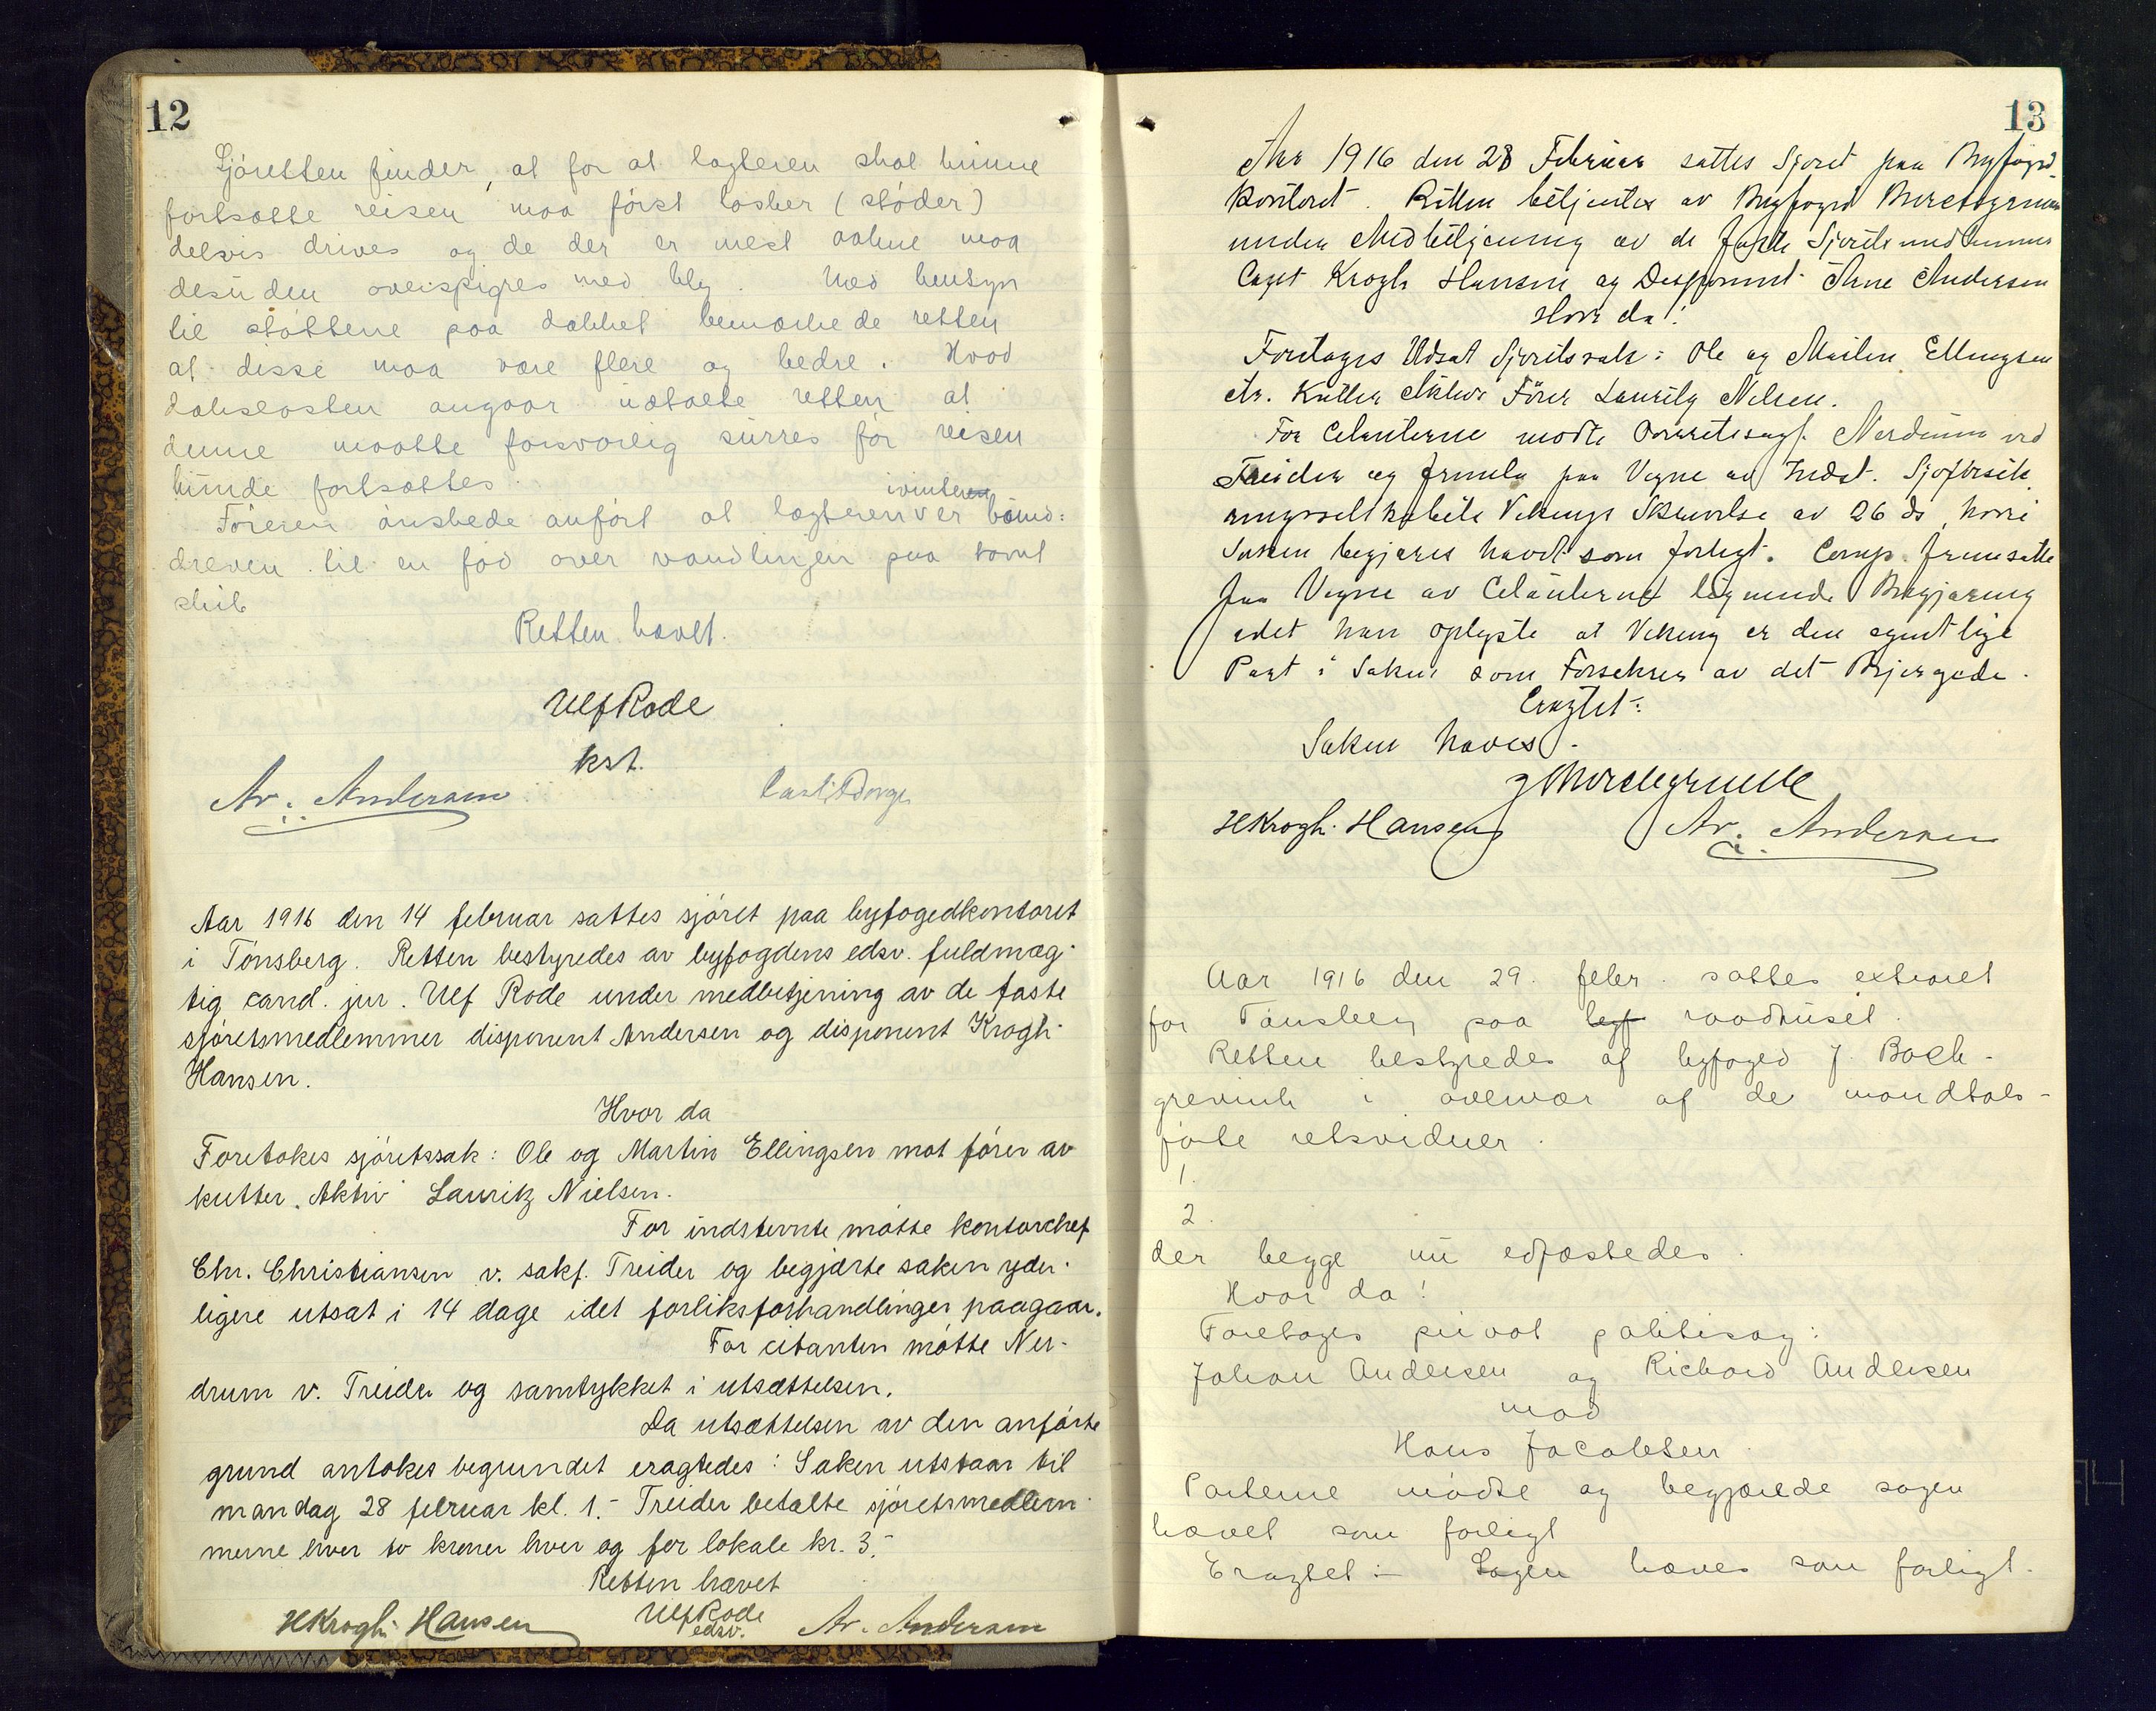 12
Sjöretten finder, at for at lægteren skal kunne
fortsætte reisen maa först lasker (støder)
delvis drives og de der er mest aabne maa
desuden overspigres med bly. Med hensyn
til støttene paa dækket bemærkede retten
at disse maa være flere og bedre. Hvad
dækslasten angaar uttalte retten at
denne maatte forsvarlig surres för reisen
kunde fortsættes.
Föreren önskede anfört at lægteren iwinter er
dreven til en fod over vandlinjen paa tomt
skib
Retten hævet.
Ulf Rode
kst.
Ar. Andersen
Aar 1916 den 14 februar sattes sjöret paa byfogedkontoret
i Tönsberg. Retten bestyredes av byfogdens edsv. fuldmæg-
tig cand. jur. Ulf Rode under medbetjening av de faste
sjöretsmedlemmer disponent Andersen og disponent Krogh-
Hansen.
Hvor da
Foretokes sjöretssak: Ole og Martin Ellingsen mot förer av
kutter "Aktiv" Lauritz Nielsen.
For indstevnte mötte kontorchef
Chr. Christiansen v. sakf. Treider og begjærte saken yder-
ligere utsat i 14 dage idet forliksforhandlinger paagaar.
For citanten mötte Ner-
drum v. Treider og samtykket i utsættelsen.
Da utsættelsen av den anförte
grund antokes begrundet eragtedes: Saken utstaar til
mandag 28 februar kl. 1.- Treider betalte sjöretsmedlem-
merne hver to kroner hver og for lokale kr. 3.-
Retten hævet
HKrogh-Hansen Ulf Rode Ar. Andersen
edsv.
13
Aar 1916 den 28 Februar sattes Sjøret paa Byfogd-
kontoret. Retten betjentes av Byfogd Borchgrevink
under Medbetjening av de faste Sjøretsmedlemmer
Capt Krogh Hansen og Disponent Arne Andersen
Hvor da!
Foretages Udsat Sjøretssak: Ole og Martin Ellingsen
ctr. Kutter Aktivs Förer Lauritz Nilsen.
For Citanterne mødte Overretssagf. Nerdrum ved
Treider og fremla paa Vegne av Indst. Sjøforsik-
ringsselskabets Vikings Skrivelse av 26 ds, hvori
Saken begjæres hævet som forligt. Comp. fremsatte
paa Vegne av Citanterne lignende Begjæring
idet han oplyste at Viking er den egentlige
Part i Saken som Forsikrer av det Bjergede.
Eragtet:
Saken hæves.
J Borchgrevink
HKrogh-Hansen Ar. Andersen
Aar 1916 den 29. febr. sattes extraret
for Tønsberg paa byf raadhuset.
Retten bestyredes af byfoged J. Borch-
grevink i overvær af de mandtals-
førte retsvidner.
1.
2.
der begge nu edfæstedes.
Hvor da!
Foretages privat politisag:
Johan Andersen og Richard Andersen
mod
Hans Jacobsen.
Parterne mødte og begjærede sagen
hævet som forligt
Eragtet:- Sagen hæves som forligt.